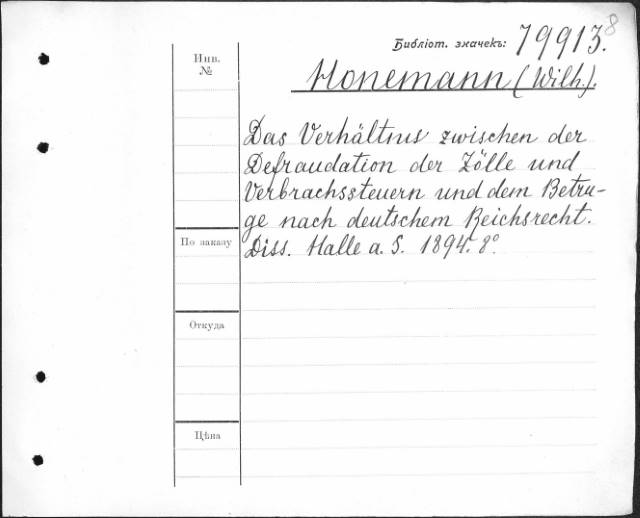 Библіот. значекъ: 79913.
8
Инв.
№
Honemann (Wilh.).
Das Verhältnis zwischen der
Defraudation der Zölle und
Verbrachssteuern und dem Betru-
ge nach deutschem Reichsrecht.
По заказу
Diss. Halle a. S. 1894. 8°.
Откуда
Цѣна